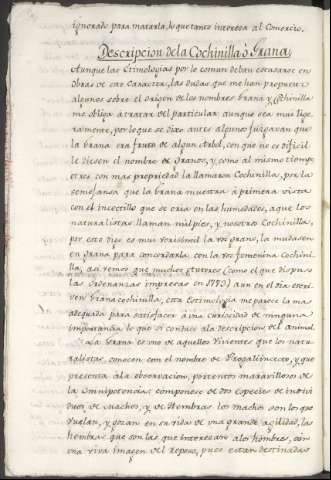 ignorado para matarla, lo que tanto interesa al Comercio.
Descripcion de la Cochinilla ò Grana
Aunque las Etimologias por lo comun deban escusarse en
Obras de este Caracter, las dudas que me han propuesto
algunos sobre el origen de los nombres Grana y Cochinilla
me obliga à tratar del particular aunque sea muy lige
ramente, por lo que se dice antes algunos juzgavan que
la Grana era fruto de algun Arbol, con que no es dificil
le diesen el nombre de Granos, y como al mismo tiempo
otros con mas propriedad la llamaron Cochinilla, por la
semejansa que la Grana muestra à primera vista
con el incectillo que se cria en las humedades, aque los
naturalistas llaman milpies, y nosotros Cochinilla,
por esto digo es mui verisimil la voz grano, la mudasen
en Grana para concordarla con la voz femenina Cochini
lla, asi vemos que muchos Autores (como el que dispuso
las Ordenanzas impresas en 1773) aun en el dia escri
ven Grana cochinilla, esta Etimologia me parece la mas
adequada para satisfacer à una curiosidad de ninguna
importancia lo que si conduce ala descripcion del animal.
La Grana es uno de aquellos Vivientes que los natu
ralistas, conocen con el nombre de Progalincecto, y que
presenta ala observacion, portentos maravillosos de
la Omnipotencia: componese de dos especies de indivi
duos de machos, y de Hembras los machos son los que
vuelan, y gozan en su vida de una grande agilidad, las
hembras que son las que interesan alos hombres, son
una viva imagen del reposo, pues estan destinadas